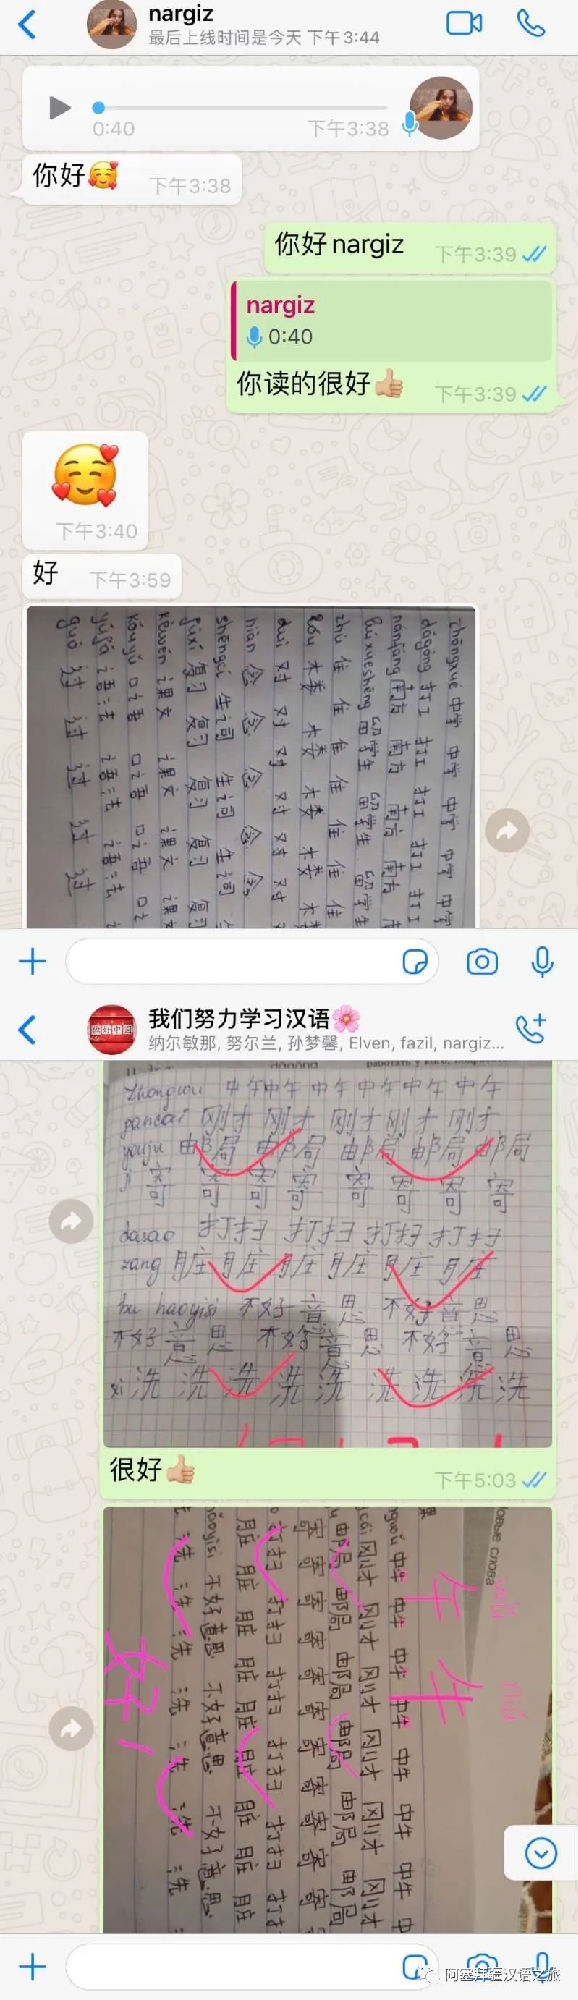 nargiz
最后上线时间是今天 下午3:44
0:40
下午3:38
你好🥰
下午3:38
你好 nargiz
下午3:39
nargiz
0:40
你读的很好👍🏼
下午3:39
🥰
下午3:40
好
下午3:59
zhōngxué 中学 中学 中学 中学
dǎgōng 打工 打工 打工 打工
nánfāng 南方 南方 南方
liúxuéshēng 留学生 留学生 留学生
zhù 住 住 住 住 住
lóu 楼 楼 楼 楼
duì 对 对 对 对 对
niàn 念 念 念 念
shēngcí 生词 生词 生词 生词
fùxí 复习 复习 复习 复习
kèwén 课文 课文 课文 课文
kǒuyǔ 口语 口语 口语
yǔfǎ 语法 语法 语法
guò 过 过 过 过 过
我们努力学习汉语🌸
纳尔敏那, 努尔兰, 孙梦馨, Elven, fazil, nargiz...
zhongwu 中午 中午 中午 中午 中午 中午
刚才 刚才 刚才 刚才 刚才
youju 邮局 邮局 邮局 邮局 邮局
ji 寄 寄 寄 寄 寄 寄 寄 寄
dasao 打扫 打扫 打扫 打扫
zang 脏 脏 脏 脏 脏 脏
bu haoyisi 不好意思 不好意思
不好意思 不好意思 不好意思
xi 洗 洗 洗 洗 洗 洗 洗 洗 洗
很好👍🏼
下午5:03
овые слова
午 午
刚才 刚才 刚才 刚才 刚才
邮局 邮局 邮局 邮局 邮局
寄 寄 寄 寄 寄 寄 寄 寄
打扫 打扫 打扫 打扫 打扫
脏 脏 脏 脏 脏 脏 脏 脏
不好意思 不好意思 不好意思
洗 洗 洗 洗 洗 洗
好!
阿塞拜疆汉语之旅